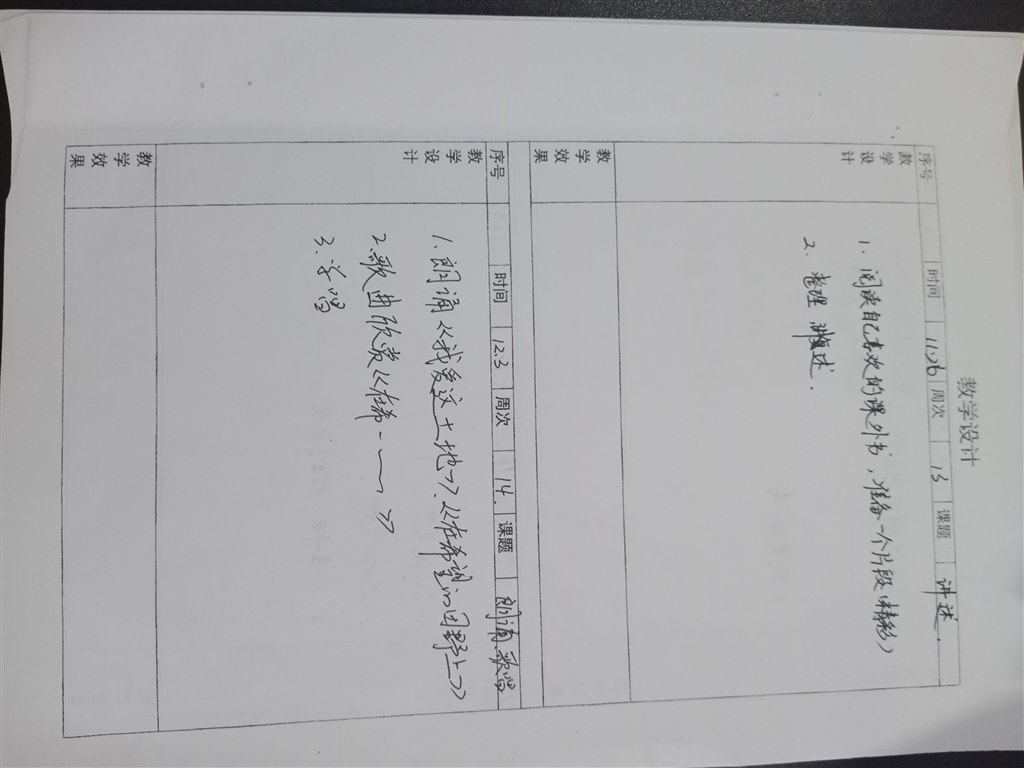 教学设计
序号 时间 11.26 周次 13 课题 讲述.
教学设计
1. 阅读自己喜欢的课外书，准备一个片段（精彩）
2. 整理 讲述.
教学效果
序号 时间 12.3 周次 14. 课题 朗诵.歌唱
教学设计
1. 朗诵《我爱这土地》.《在希望的田野上》
2. 歌曲欣赏《在希--》
3. 学唱
教学效果